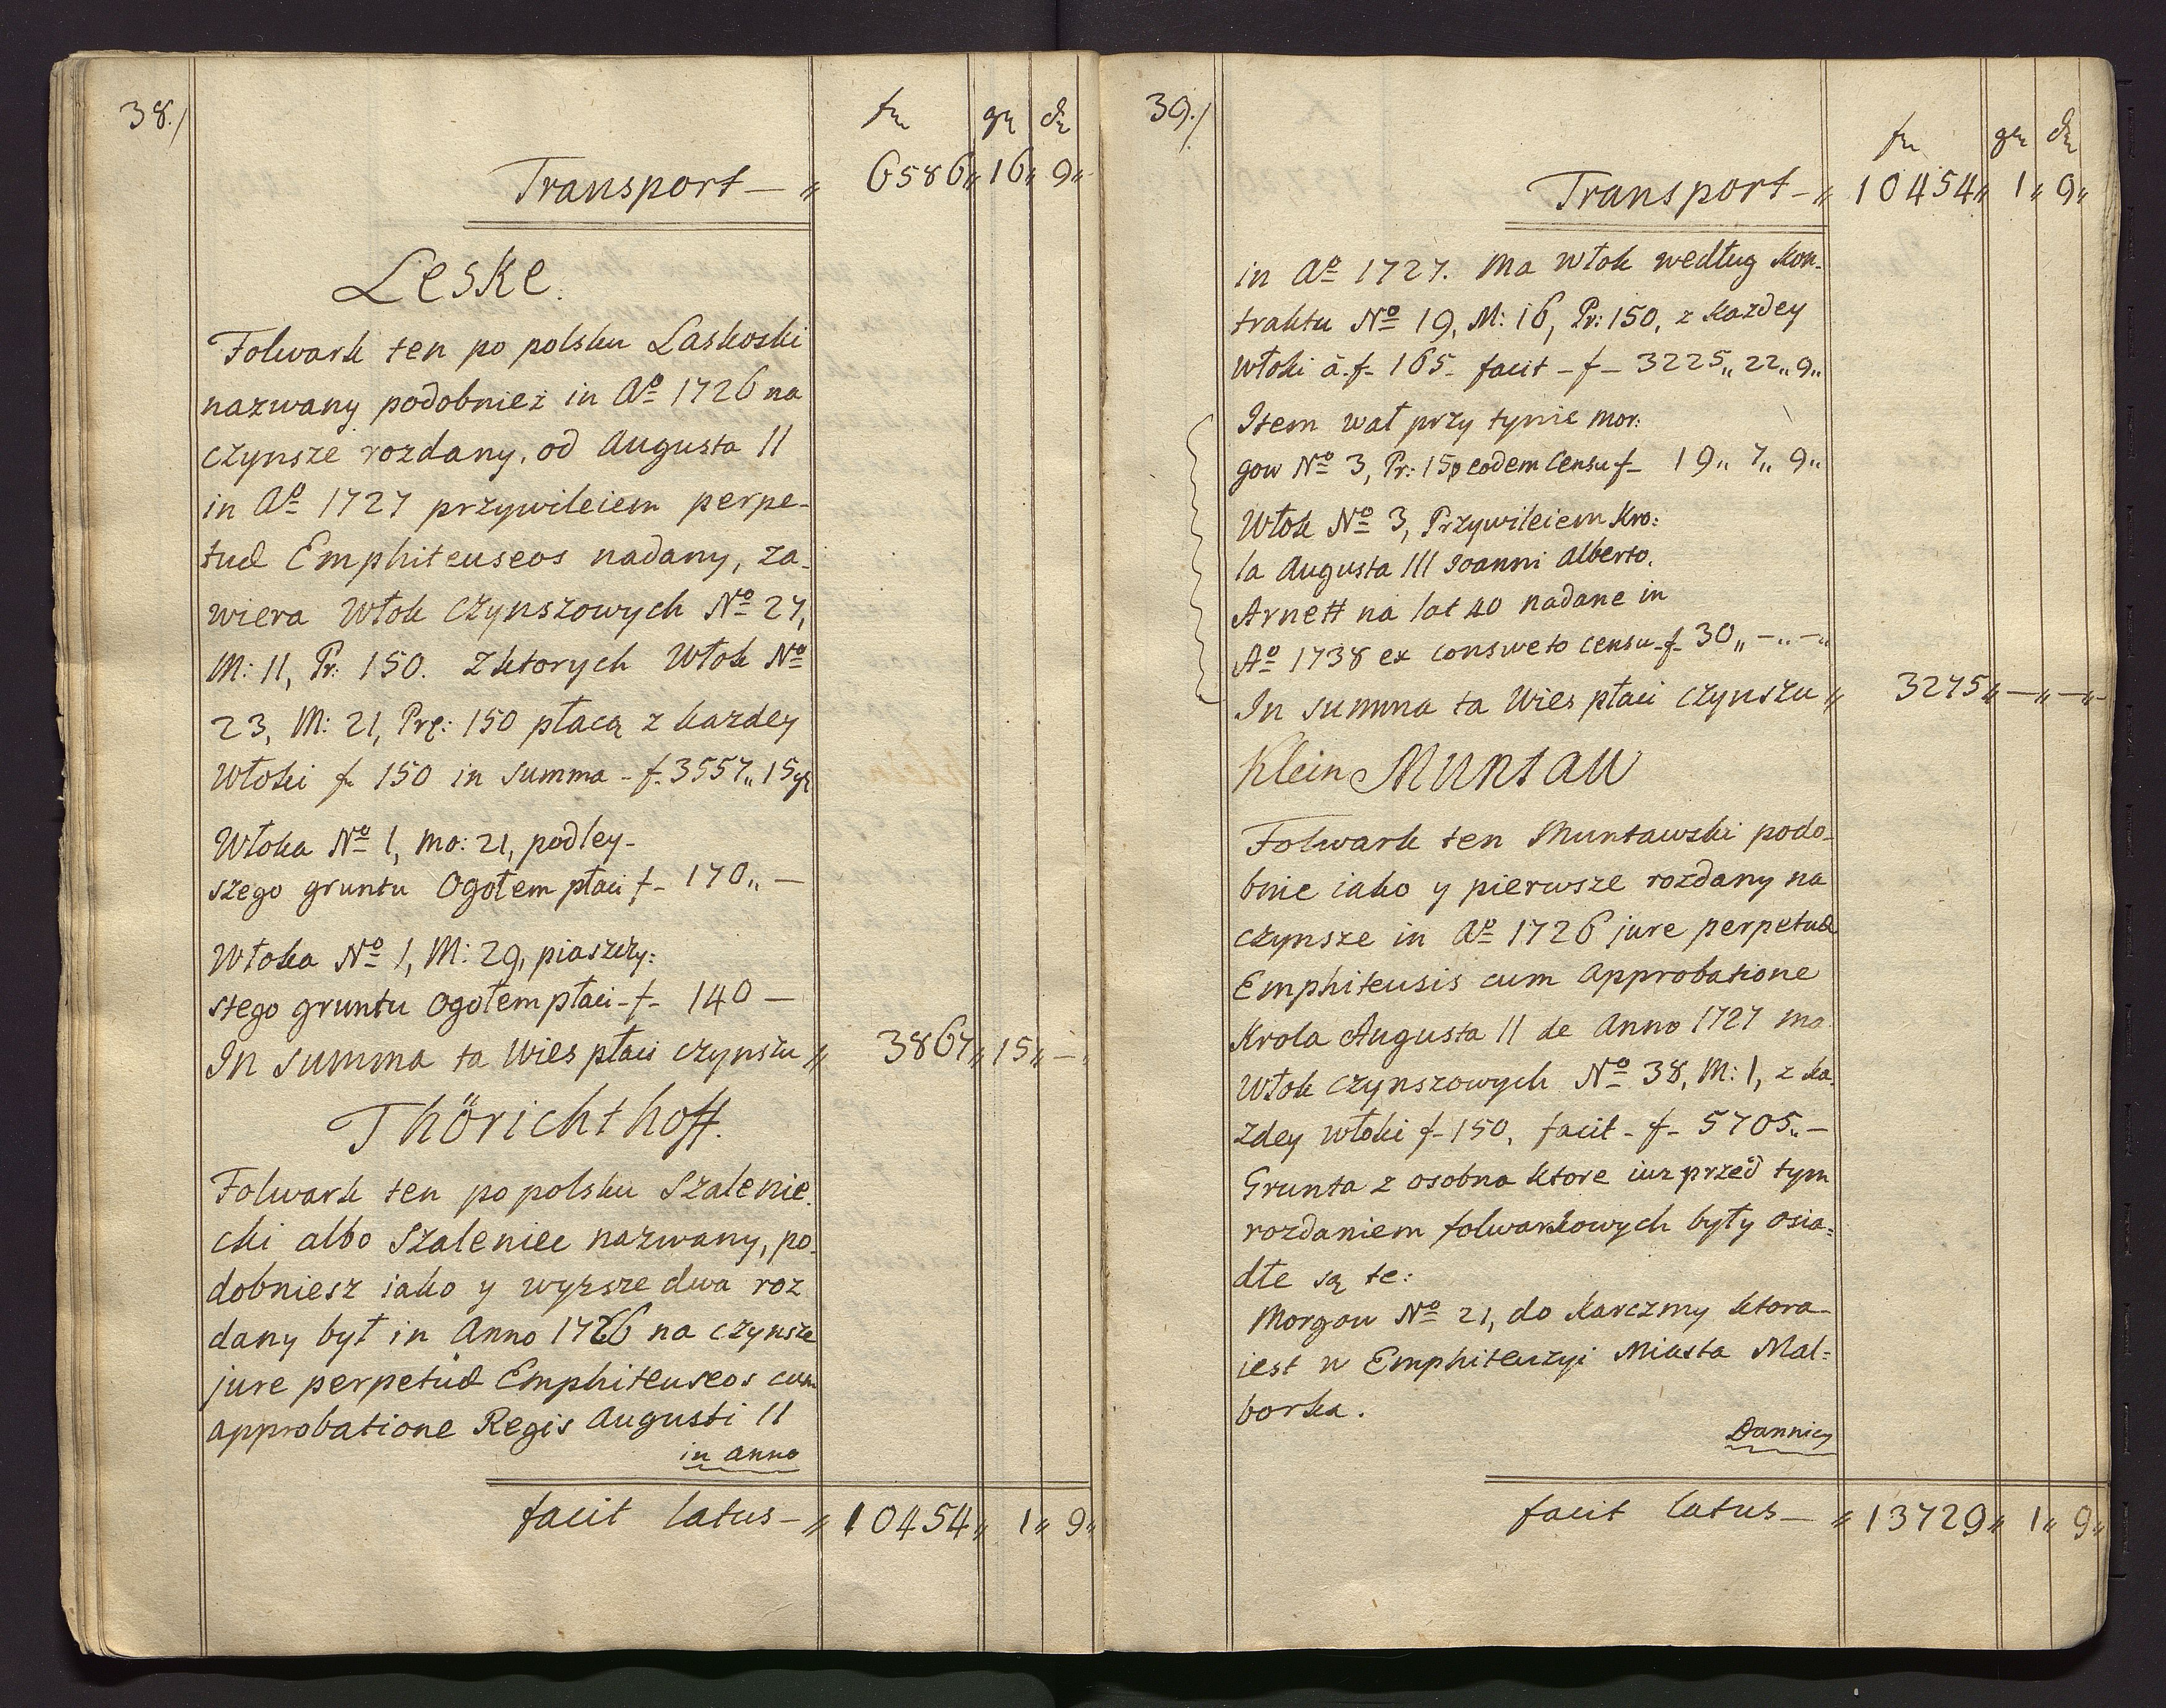 38./
fl gr dn
Transport — „ 6586„ 16„ 9„
Leske.
Folwark ten po polsku Laskoski
nazwany podobnież in Aº 1726 na
czynsze rozdany, od Augusta II
in Aº 1727 przywileiem perpe-
tuæ Emphiteuseos nadany, za-
wiera Włok czynszowych Nº 27,
M: 11, Pr: 150. Z ktorych Włok Nº
23, M: 21, Prę: 150 płacą z kazdey
Włoki f 150 in Summa - f. 3557„ 15 gr
Włoka Nº 1, mo: 21, podley-
szego gruntu Ogołem płaci f- 170„ —
Włoka Nº 1, M: 29, piaszczy:
stego gruntu Ogołem płaci - f- 140 —
In Summa ta Wies płaci czynszu „ 3867„ 15„ —„
Thörichthoff.
Folwark ten po polsku Szalenie.
cki albo Szaleniec nazwany, po-
dobniesz iako y wyższe dwa roz
dany był in Anno 1726 na czynsze
jure perpetuæ Emphiteuseos cum
approbatione Regis Augusti II
in anno
facit latus — „ 10454„ 1„ 9„
39./
fl gr dn
Transport — „ 10454„ 1„ 9„
in Aº 1727. ma Włok według Kon-
traktu Nº 19, M: 16, Pr: 150, z kazdey
Włoki à f- 165- facit - f - 3225„ 22„ 9„
Item wał przy tymie mor:
gow Nº 3, Pr: 150 eodem Censu f- 19„ 7„ 9„
Włok Nº 3, Przywileiem Kro:
la Augusta III Ioanni Alberto.
Arnett na lat 40 nadane in
Aº 1738 ex consweto censu - f- 30„ —„ —„
In Summa ta Wies płaci czynszu „ 3275„ —„ —„
Klein Muntau
Folwark ten Muntawski podo-
bnie iako y pierwsze rozdany na
czynsze in Aº 1726 jure perpetuæ
Emphiteusis cum Approbatione
Krola Augusta II de Anno 1727 ma
Włok czynszowych Nº 38, M: 1, z ka-
zdey włoki f- 150, facit - f - 5705„ —
Grunta z osobna ktore iuz przed tym
rozdaniem folwarkowych były osia:
dłe są te:
Morgow Nº 21, do Karczmy ktora-
iest w Emphiteuzyi Miasta Mal:
borka.
Dannicy
facit latus — „ 13729„ 1„ 9„